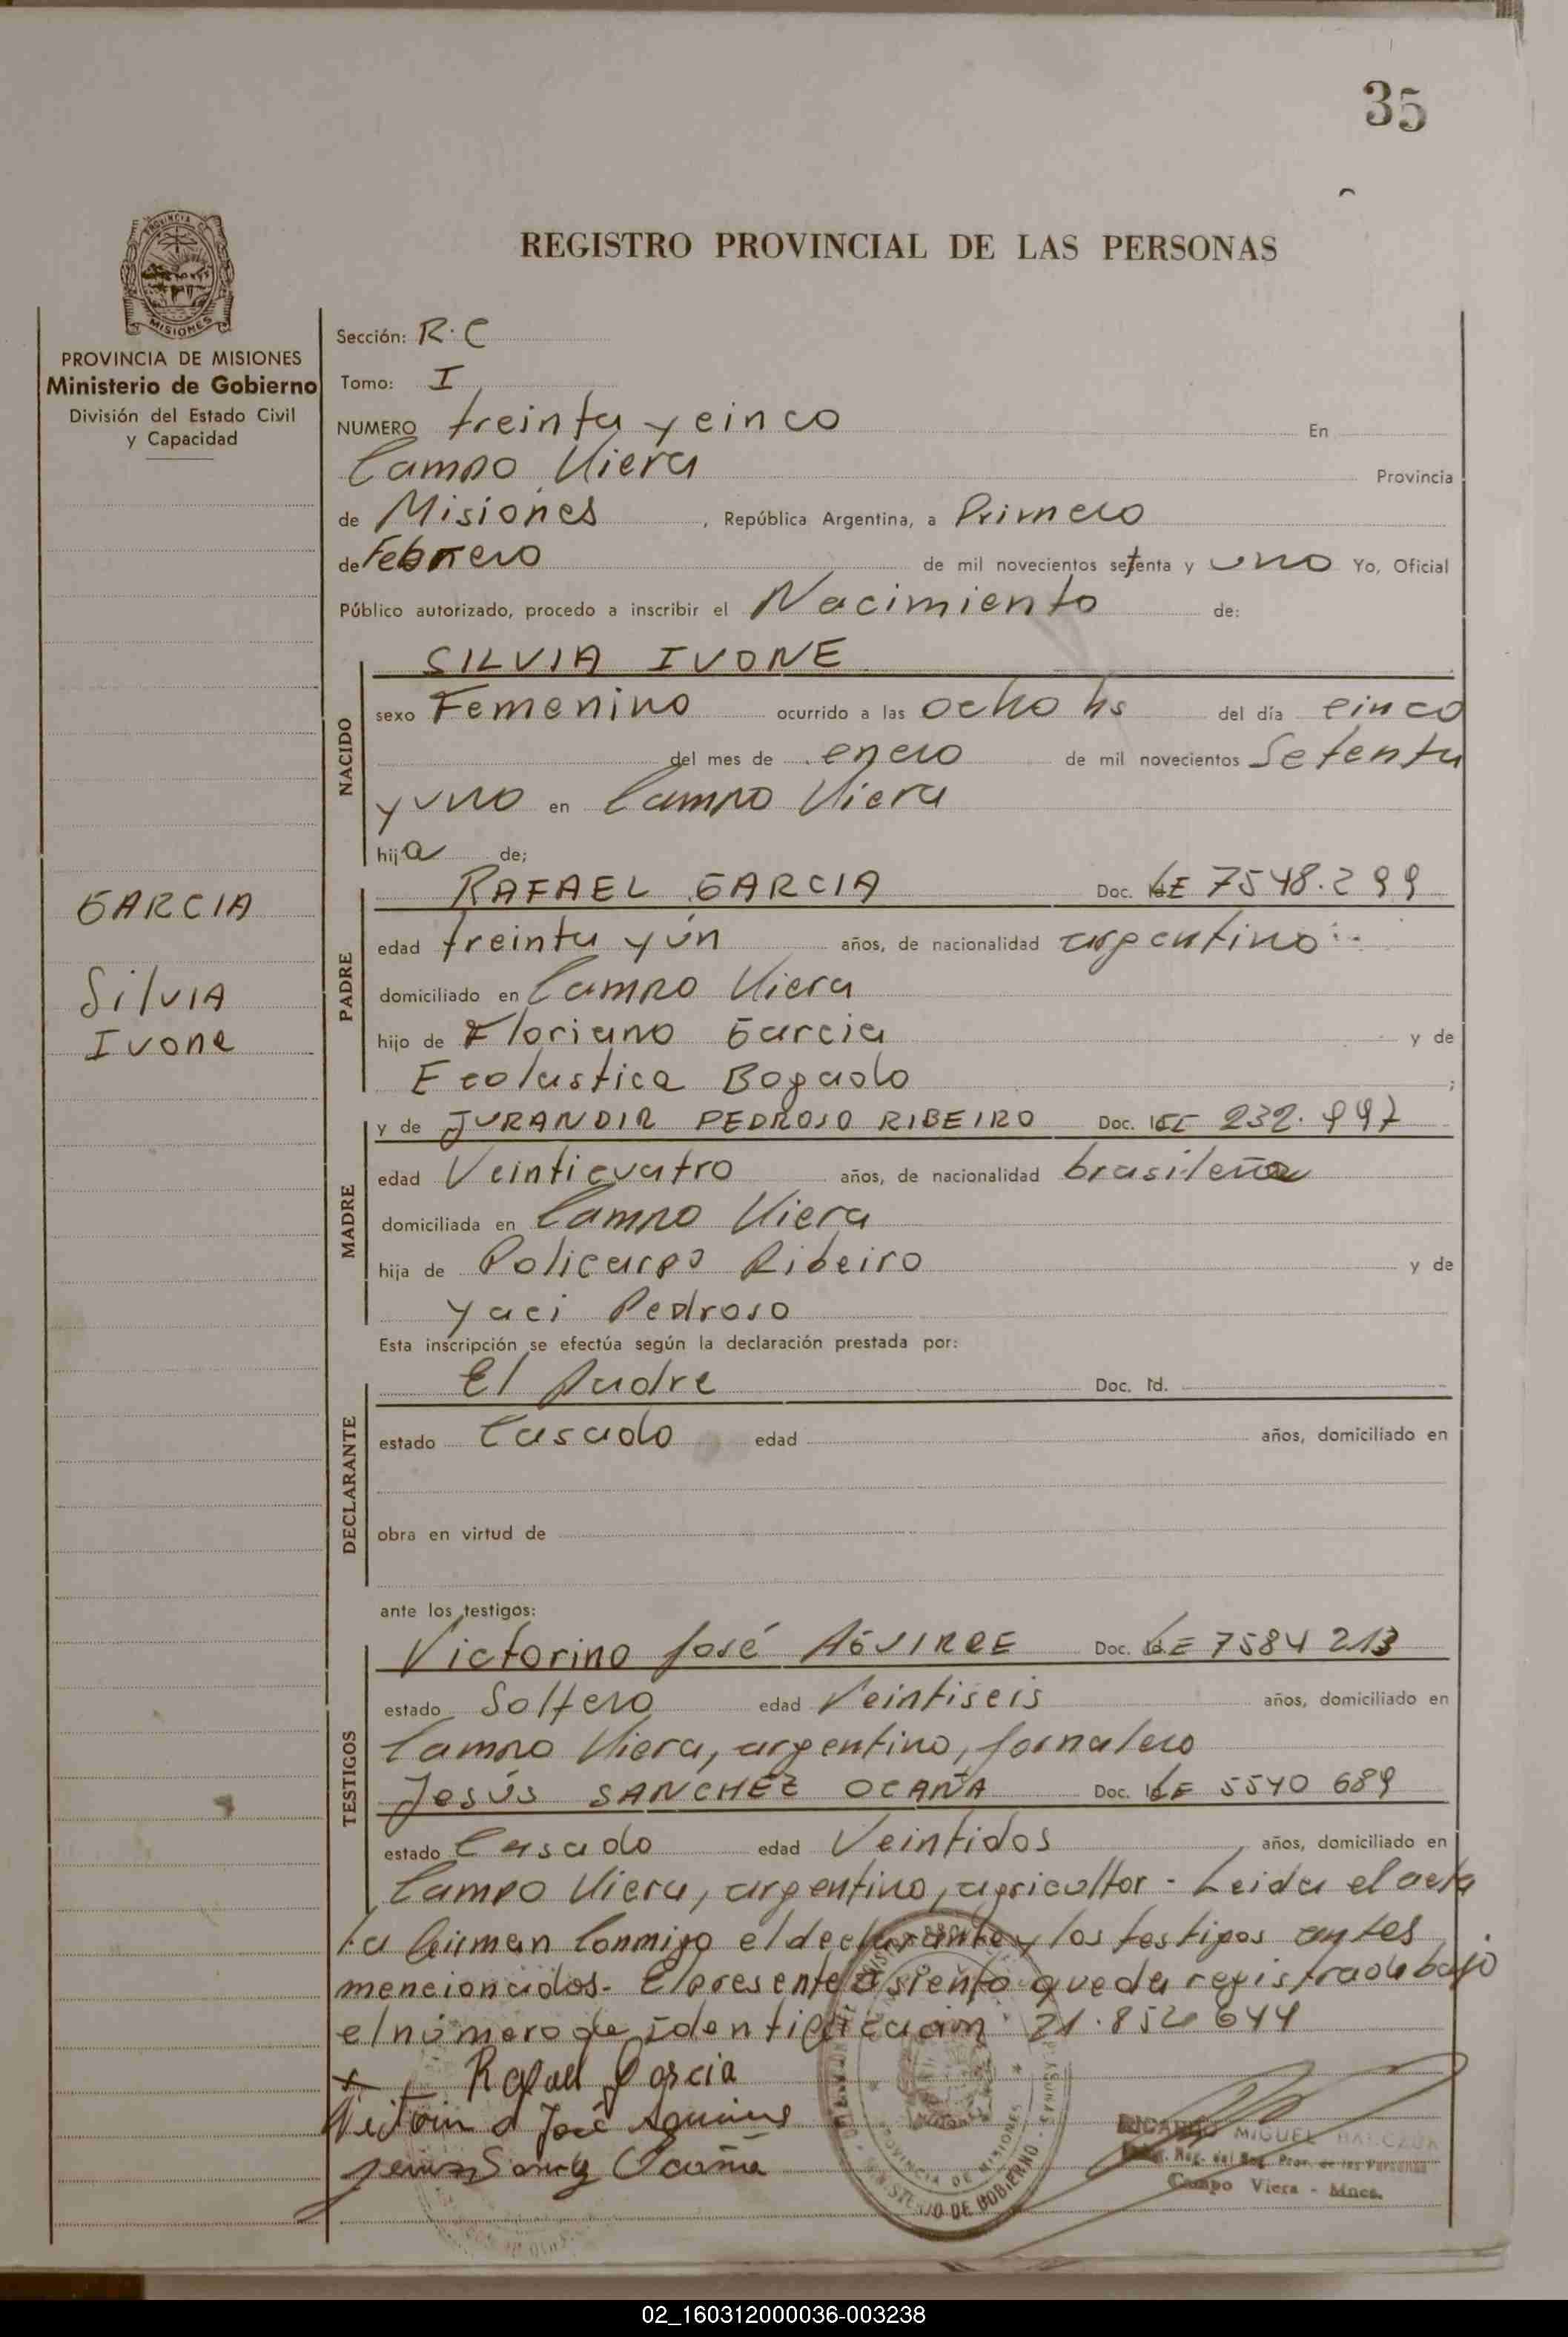 35
REGISTRO PROVINCIAL DE LAS PERSONAS
PROVINCIA DE MISIONES
Ministerio de Gobierno
División del Estado Civil
y Capacidad
GARCIA
Silvia
Ivone
Sección: R.C
Tomo: I
NUMERO treinta y cinco En
Campo Viera Provincia
de Misiones, República Argentina, a Primero
de Febrero de mil novecientos setenta y uno Yo, Oficial
Público autorizado, procedo a inscribir el Nacimiento de:
NACIDO
SILVIA IVONE
sexo Femenino ocurrido a las ocho hs del día cinco
del mes de enero de mil novecientos setenta
y uno en Campo Viera
hija de;
PADRE
RAFAEL GARCIA Doc. LE 7548.299
edad treinta y ún años, de nacionalidad argentino
domiciliado en Campo Viera
hijo de Floriano Garcia y de
Ecolastica Bogado ;
MADRE
y de JURANDIR PEDROSO RIBEIRO Doc. 232.997
edad Veinticuatro años, de nacionalidad brasileña
domiciliada en Campo Viera
hija de Policarpo Ribeiro y de
Yaci Pedroso
Esta inscripción se efectúa según la declaración prestada por:
DECLARANTE
El Padre Doc. Id.
estado Casado edad años, domiciliado en
obra en virtud de
ante los testigos:
TESTIGOS
Victorino José AGUIRRE Doc. LE 7584213
estado Soltero edad Veintiseis años, domiciliado en
Campo Viera, argentino, jornalero
Jesús SANCHEZ OCAÑA Doc. LE 5540 689
estado Casado edad Veintidos años, domiciliado en
Campo Viera, argentino, agricultor - Leida el acta
La firman conmigo el declarante y los testigos antes
mencionados. El presente asiento queda registrado bajo
el número de identificación 21.852 644
x Rafael Garcia
Victorino José Aguirre
Ocaña
MIGUEL
Campo Viera - Mnes.
PROVINCIA DE MISIONES
MINISTERIO DE GOBIERNO
02_160312000036-003238